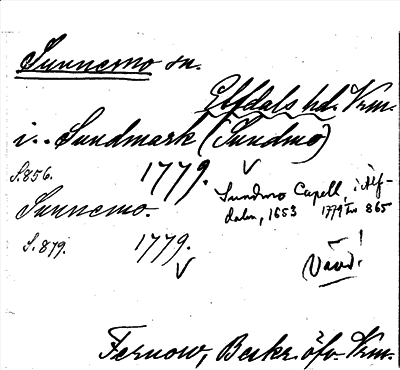 Sunnemo sn.
Elfdals hd. Vrm.
i.. Sundmark (Sundmo)
S. 856. 1779.
Sundmo Capell, i Älf-
dalen, 1653 1779 Fer 865
Sunnemo.
S. 879. 1779.
Vävd!
Fernow, Beskr. öfv. Vrm.